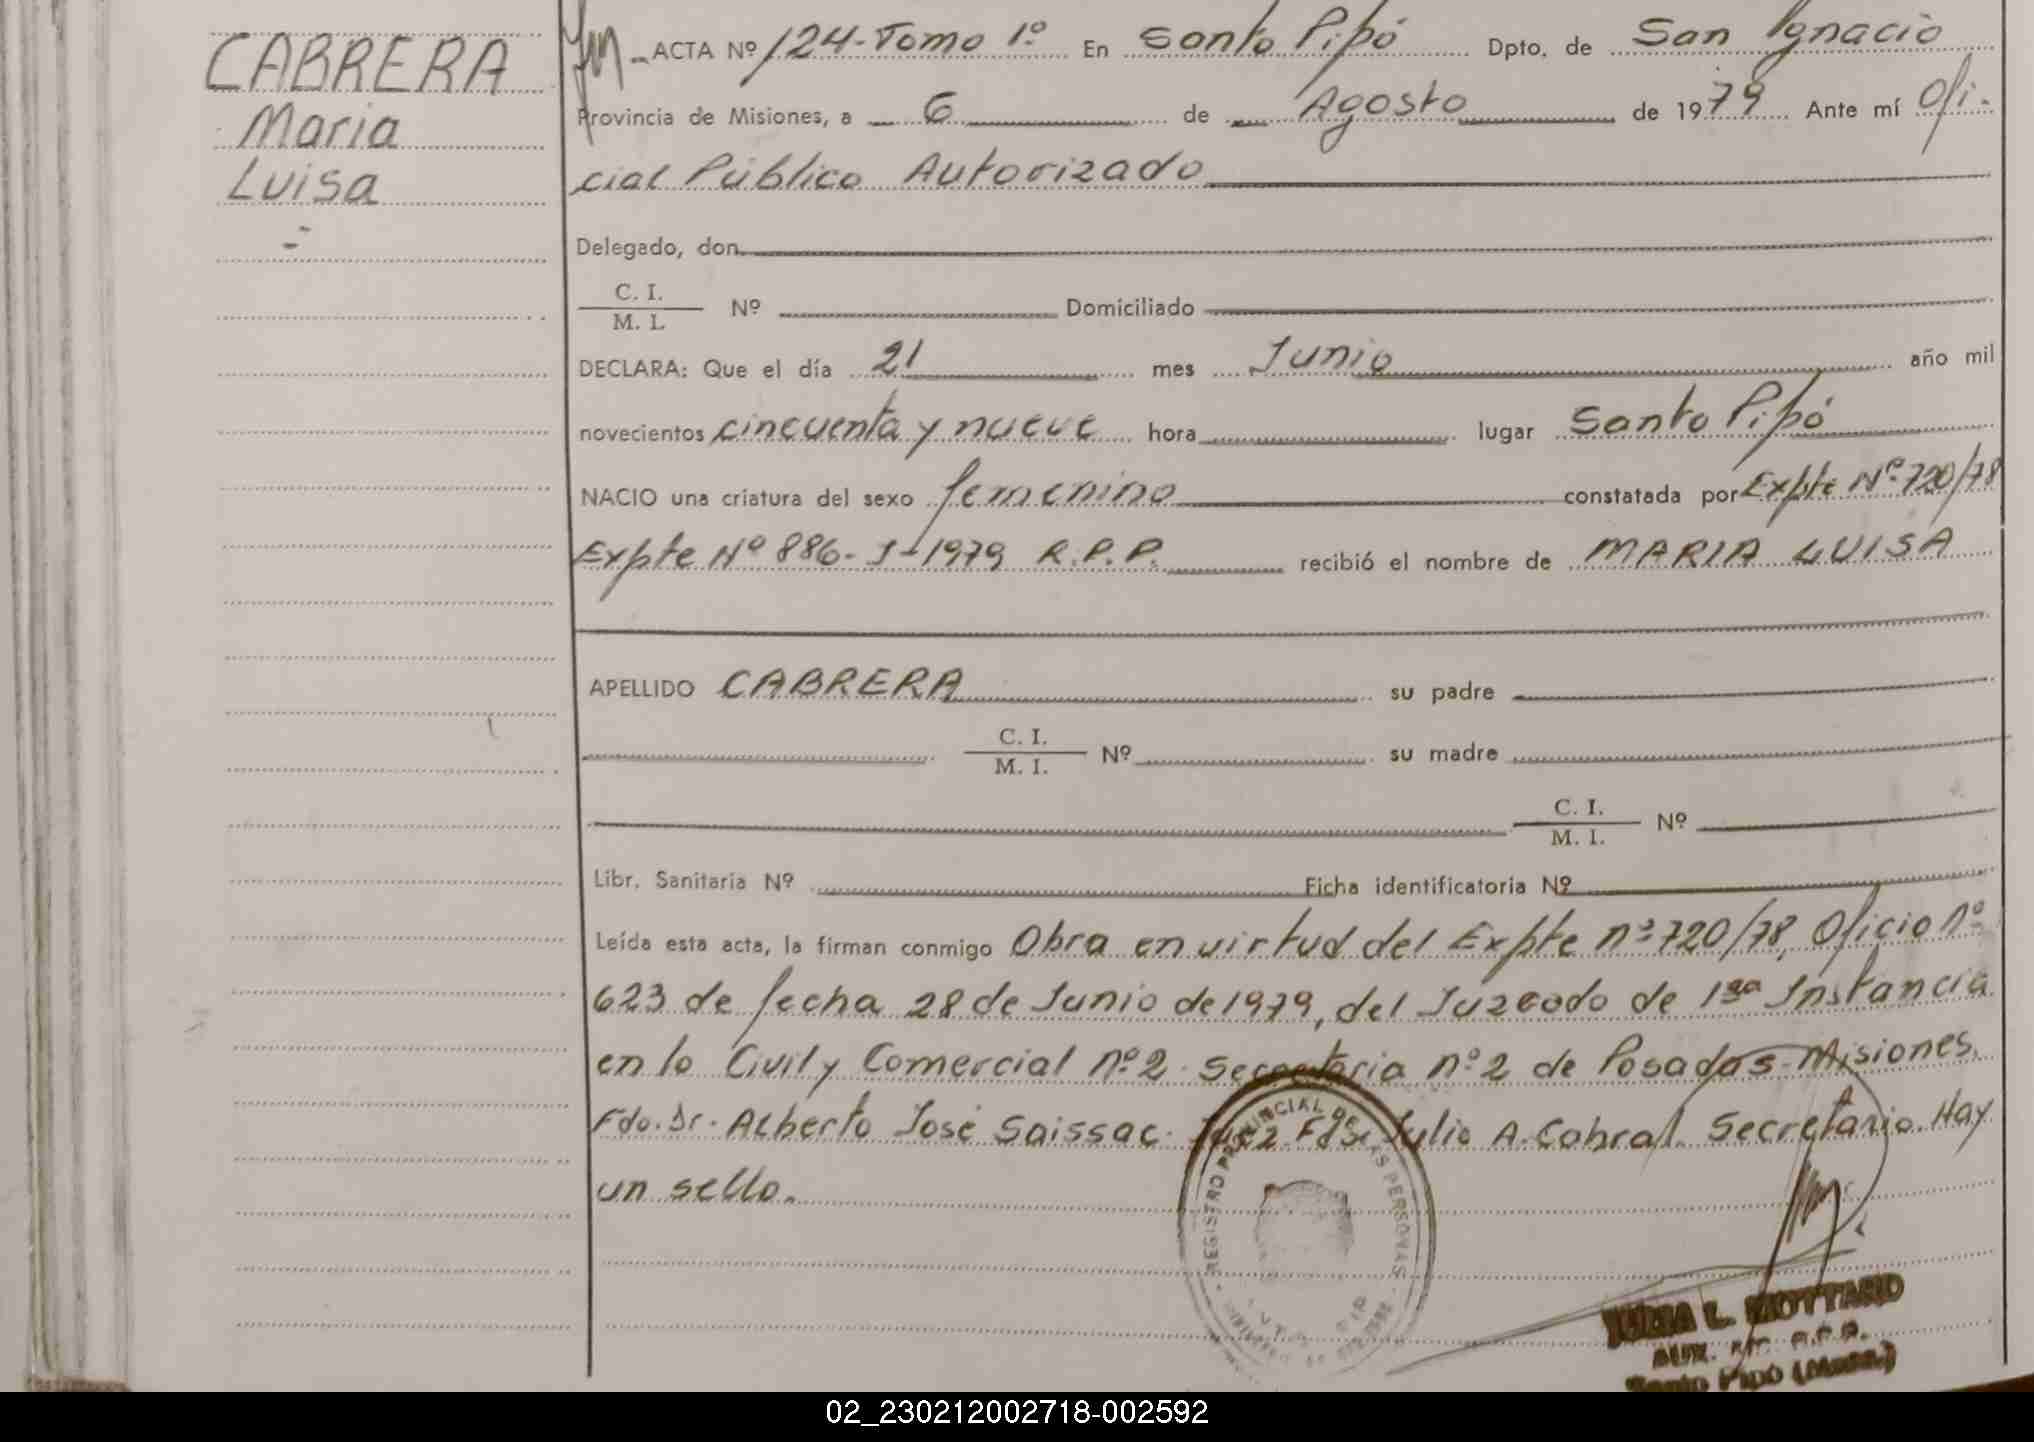 CABRERA
Maria
Luisa
ACTA Nº 124-Tomo 1º En Santo Pipó Dpto. de San Ignacio
Provincia de Misiones, a 6 de Agosto de 1979 Ante mí Ofi-
cial Público Autorizado
Delegado, don
C. I.
M. I. Nº Domiciliado
DECLARA: Que el día 21 mes Junio año mil
novecientos cincuenta y nueve hora lugar Santo Pipó
NACIO una criatura del sexo femenino constatada por Expte Nº 720/78
Expte Nº 886-J-1979 R.P.P. recibió el nombre de MARIA LUISA
APELLIDO CABRERA su padre
C. I.
M. I. Nº su madre
C. I.
M. I. Nº
Libr. Sanitaria Nº Ficha identificatoria Nº
Leída esta acta, la firman conmigo Obra en virtud del Expte nº 720/78, Oficio Nº
623 de fecha 28 de Junio de 1979, del Juzgado de 1ra Instancia
en lo Civil y Comercial Nº 2 Secretaria nº 2 de Posadas-Misiones.
Fdo. Dr. Alberto José Saissac. Juez Fdo. Julio A. Cabral. Secretario. Hay
un sello.
REGISTRO PROVINCIAL DE LAS PERSONAS
L. MOTTARD
AUX.
Santo Pipó
02_230212002718-002592